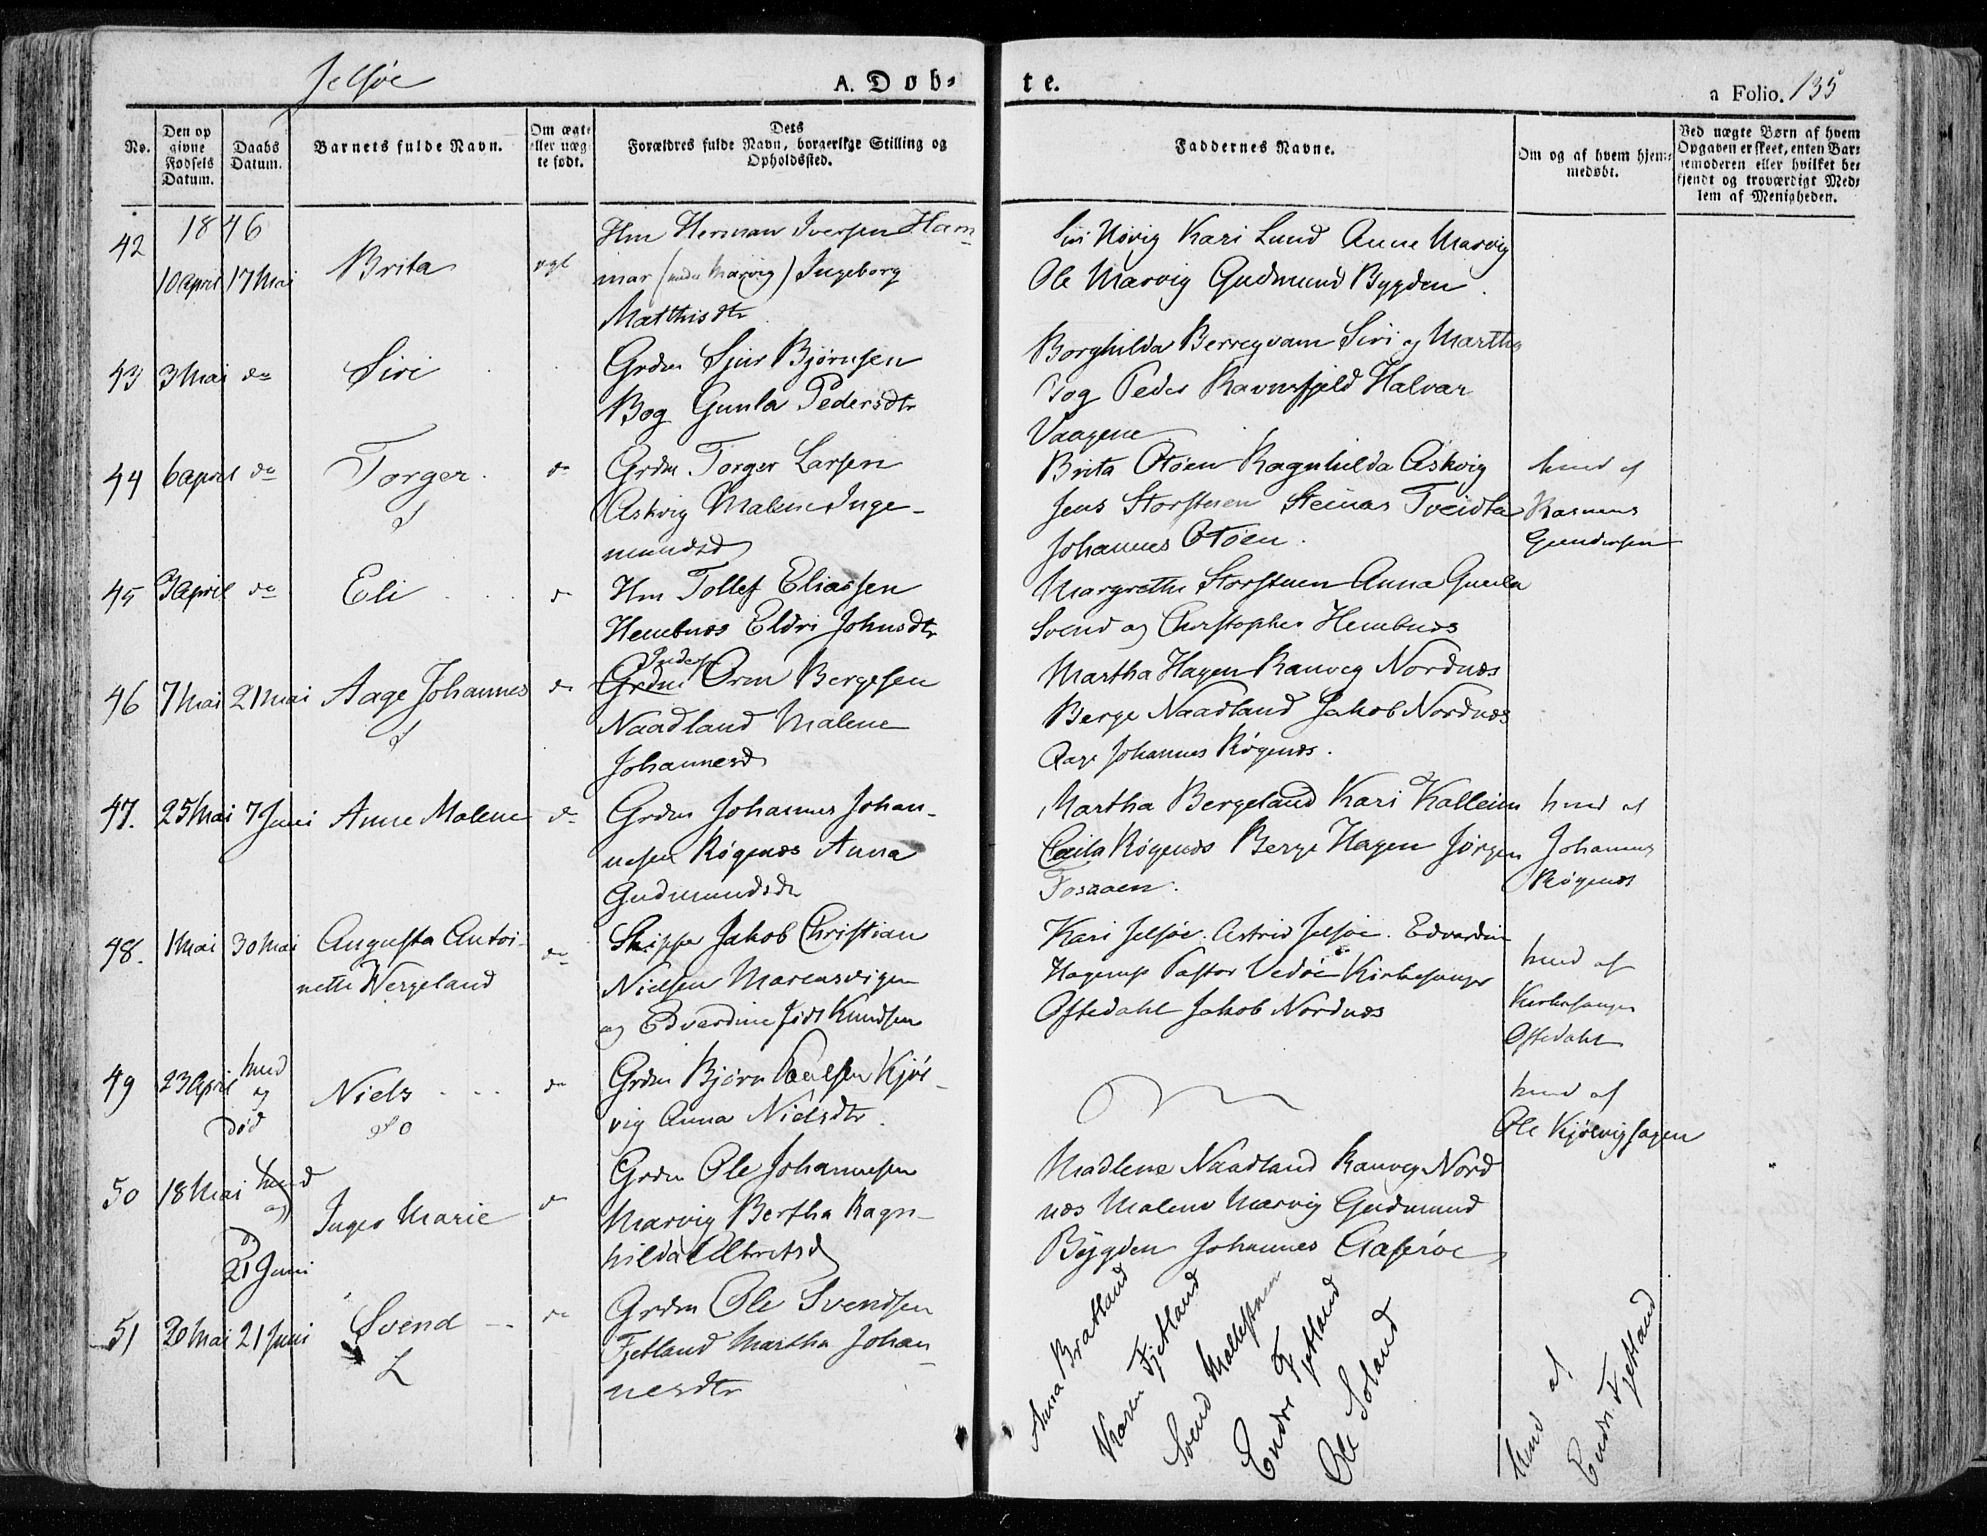 Jelsøe
A. Døb-
te.
a Folio. 135
No.
Den op
givne
Fødsels
Datum.
Daabs
Datum.
Barnets fulde Navn.
Om ægte
eller uæg
te født.
Dets
Forældres fulde Navn, borgerlige Stilling og
Opholdssted.
Faddernes Navne.
Om og af hvem hjem-
medøbt.
Ved uægte Børn af hvem
Opgaven er skeet, enten Bar-
nemoderen eller hvilket be-
kjendt og troværdigt Med-
lem af Menigheden.
1846
42
10 April 17 Mai
Brita
ægt
Hm Herman Iversen Ham-
mar (under Marvig) Ingeborg
Matthisdtr
Siri Høvig Kari Lund Anne Marvig
Ole Marvig Gudmund Bygden
43 3 Mai do
Siri
Grdm Sjur Bjørnsen
Bog Gunla Pedersdtr
Borghilda Berregvam Siri og Martha
Bog Peder Ravnsfjeld Halvar
Vaagene
44 6 April do
Torger
do
Grdm Torger Larsen
Askvig Malene Inge-
mundsd
Brita Otøen Ragnhilda Askvig
Jens Storstuen Steinar Tveidta
Johannes Otøen.
hmd af
Rasmus
Gundersen
45 3 April do
Eli
do
Hm Tollef Eliassen
Hembnæs Eldri Johnsdtr
Margrethe Storstuen Anna Gunla
Svend og Christopher Hembnæs
46 7 Mai 21 Mai
Aage Johannes
do
Inders
Grdm Orm Bergesen
Naadland Malene
Johannesd
Martha Hagen Ranveg Nordnæs
Berge Naadland Jakob Nordnæs
Aage Johannes Røgenæs.
47. 25 Mai 7 Juni
Anne Malene
do
Grdm Johannes Johan-
nesen Røgenæs Anna
Gudmundsdr
Martha Bergeland Kari Kalleim
Ceila Røgenæs Berge Hagen Jørgen
Fosaaen.
hmd af
Johannes
Røgenæs
48. 1 Mai 30 Mai
Augusta Antoi-
nette Wergeland
do
Skipper Jakob Christian
Nielsen Marcusvigen
og Edvardine Født Knudsen
Kari Jelsøe. Astrid Jelsøe. Edvardine
Hagerup Pastor Vedøe Kirkesanger
Oftedahl Jakob Nordnæs
hmd af
Kirkesanger
Oftedahl
49 23 April
hmd
og
død
Niels
do
Grdm Bjørn Paulsen Kjøl-
vig Anna Nielsdtr.
hmd af
Ole Kjølvighagen
50 18 Mai
hmd
og
21 Juni
Inger Marie
do
Grdm Ole Johannesen
Marvig Bertha Ragn-
hilda Albretsd
Madlene Naadland Ranveg Nord
næs Malene Marvig Gudmund
Bygden Johannes Gaserøe
51 20 Mai 21 Juni
Svend
do
Grdm Ole Svendsen
Fjetland Martha Johan-
nesdtr
Anna Bratland
Karen Fjetland
Svend Mallestuen
Endre Fjetland
Ole Soland
hmd af
Endre Fjetland